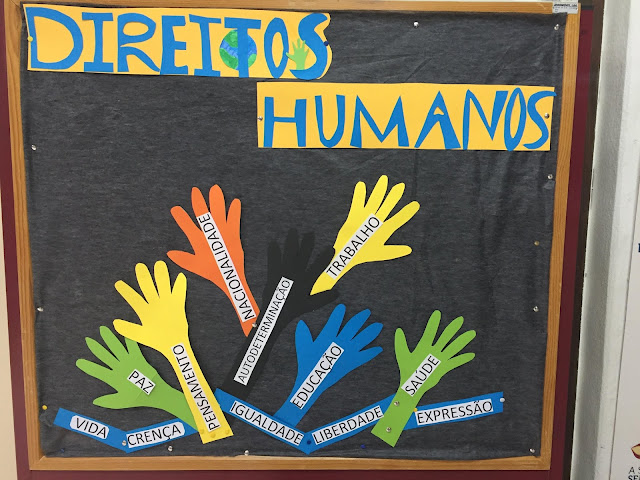 DIREITOS
HUMANOS
NACIONALIDADE
TRABALHO
AUTODETERMINAÇÃO
PAZ
PENSAMENTO
EDUCAÇÃO
SAÚDE
VIDA
CRENÇA
IGUALDADE
LIBERDADE
EXPRESSÃO